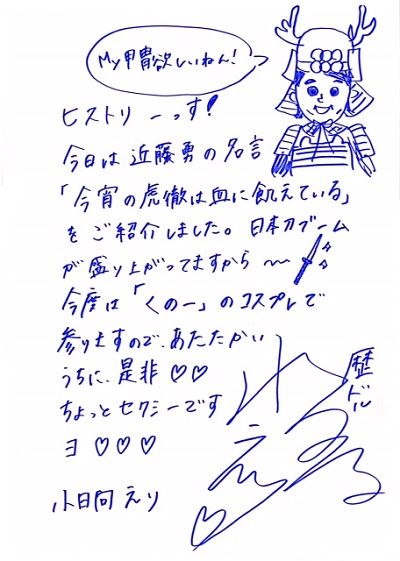 My甲冑欲しいねん!
ヒストリーっす!
今日は近藤勇の名言
「今宵の虎徹は血に飢えている」
をご紹介しました。日本刀ブーム
が盛り上がってますから〜
今度は「くの一」のコスプレで
参りますので、あたたかい
うちに、是非♡♡
ちょっとセクシーです
ヨ♡♡♡
小日向えり
歴ドル